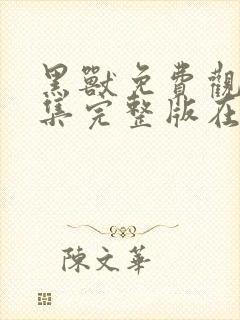 黑獸免費觀
集完整版在
陳文華